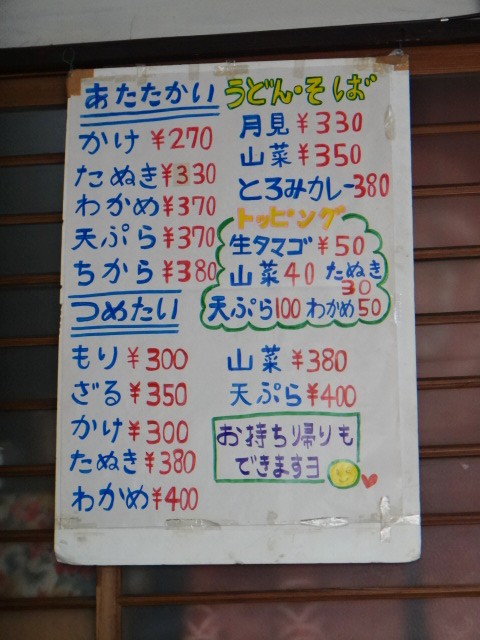 あたたかい うどん・そば
かけ ¥270
たぬき ¥330
わかめ ¥370
天ぷら ¥370
ちから ¥380
月見 ¥330
山菜 ¥350
とろみカレー380
トッピング
生タマゴ ¥50
山菜 40 たぬき 30
天ぷら100 わかめ50
つめたい
もり ¥300
ざる ¥350
かけ ¥300
たぬき ¥380
わかめ ¥400
山菜 ¥380
天ぷら ¥400
お持ち帰りも
できますヨ